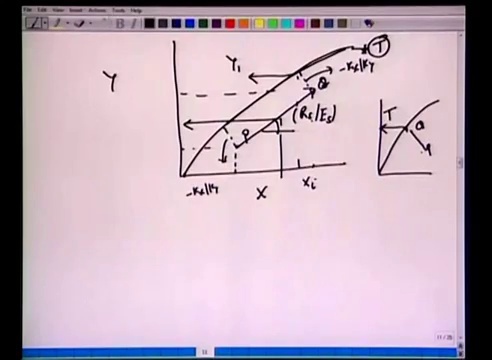 File Edit View Insert Actions Tools Help
Y
Y₁
T
-Kx/Ky
Q
(Rs/Es)
P
T
Q
P
-Kx/Ky
X
Xi